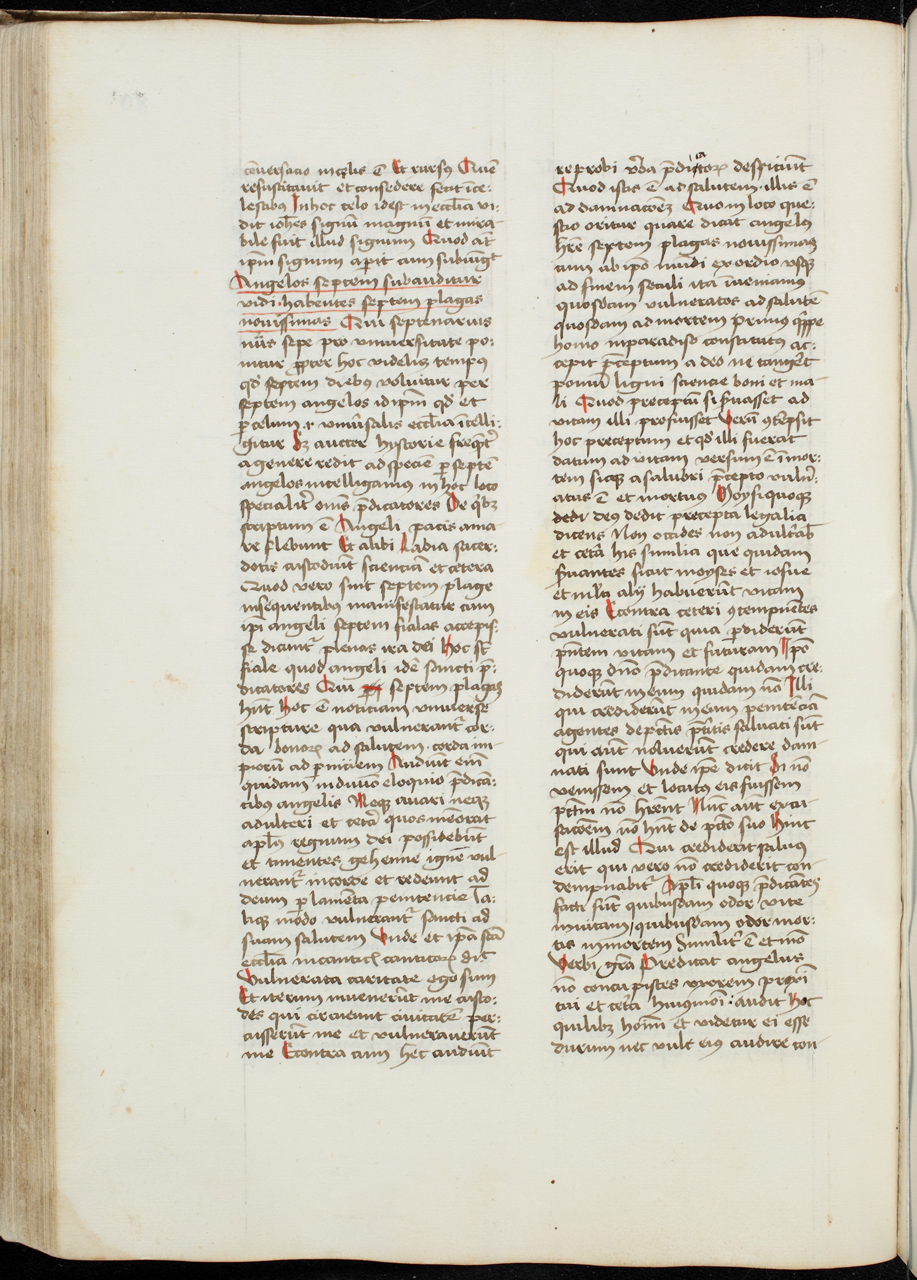 cōversacio ī celis ē Et rursus Quē
resuscitauit et consedere fecit ī ce-
lestibus In hoc celo id est in ecclīa vi-
dit iohēs signū magnū et mira-
bile fuit illud signum Quod aūt
ipm̄ signum aperit cum subiungit
Angelos septem subauditur
vidi habentes septem plagas
nouissimas Qui septenarius
nūs sepe pro vniuersitate po-
nitur propter hoc videlicet tempus
qd septem diebus voluitur per
septem angelos id ipm̄ qd et
per celum .i. vniūsalis ecclīa ītelli-
gitur Sz auctor hystorie freqntr
a genere redit ad speciē per septē
angelos intelligamus in hoc loco
specialitr omīs pdicatores De qbz
scriptum ē Angeli pacis ama
re flebunt Et alibi Labia sacer-
dotis custodiūt scienciā et cetera
Quod vero sint septem plage
insequentibus manifestatur cum
ipi angeli septem fialas accepis-
se dicuntr plenas ira dei Hoc st̄
fiale quod angeli idē sancti p̄-
dicatores Qui septem plagas
hn̄t Hoc ē noticiam vniuerse
scripture qua vulnerantr cor-
da bonorum ad salutem corda im
piorū ad perniciem Audiūt enī
quidam in diuino eloquio p̄dicā-
tibus angelis Neqz auari neqz
adulteri et cetera quos mēorat
apl̄us regnum dei possidebūt
et timentes gehenne ignē vul-
nerantr in corde et redeunt ad
deum per lamēta penitencie Ta-
liqz modo vulnerantr sancti ad
suam salutem Vnde et ipā scā
ecclīa in canticis canticorum dic̄
Vulnerata caritate ego sum
Et iterum inuenerūt me custo-
des qui circueunt ciuitatē per-
cusserūt me et vulnerauerūt
me Econtra cum hec audiūt
reprobi vba p̄dicatorum defficiūt
Quod istis ē ad salutem illis ē
ad damnacōez Quo in loco que-
stio oritur quare dicat angelos
hr̄e septem plagas nouissimas
cum ab ipō mūdi exordio vsqz
ad finem seculi ita īueniamus
quosdam vulneratos ad salutē
quosdam ad mortem Primus qppe
homo in paradiso constitutus ac-
cepit p̄ceptum a deo ne tangēt
pomū ligni sciencie boni et ma-
li Quod preceptū si ſuasset ad
vitam illi profuisset Verū 9tēpsit
hoc preceptum et qd illi fuerat
datum ad vitam versum ē ī mor-
tem sicqz a salubri p̄cepto vulnr̄
atus ē et mortuus Moysi quoqz
dedi deus dedit precepta legalia
dicens Non occides non adultābis
et cetā his similia que quidam
ſuantes sicut moyses et iosue
et mlti alij habuerūt vitam
in eis Econtra ceteri 9tempnētes
vulnerati sūt quia perdiderūt
pn̄tem vitam et futuram Ipō
quoqz dn̄o p̄dicante quidam cre-
diderūt in eum quidam nō Illi
qui crediderūt in eum penitēciā
agentes de pctis p̄titis saluati sūt
qui aūt noluerūt credere dam-
nati sunt Vnde ipē dicit Si nō
venissem et locutus eis fuissem
pctm nō hr̄ent Nūc aut excu-
sacōem nō hn̄t de pctō suo Hinc
est illud Qui crediderit saluus
erit qui vero nō crediderit con-
dempnabitr Apl̄i quoqz p̄dicātes
facti sūt quibusdam odor vite
in vitam quibusdam odor mor-
tis in mortem Similitr ē et mō
Verbi grā Predicat angelus
nō concupisces vxorem proxī
tui et cetā huiusmōi: audit hoc
quilibz homī et videtur ei esse
durum nec vult eius audire con-